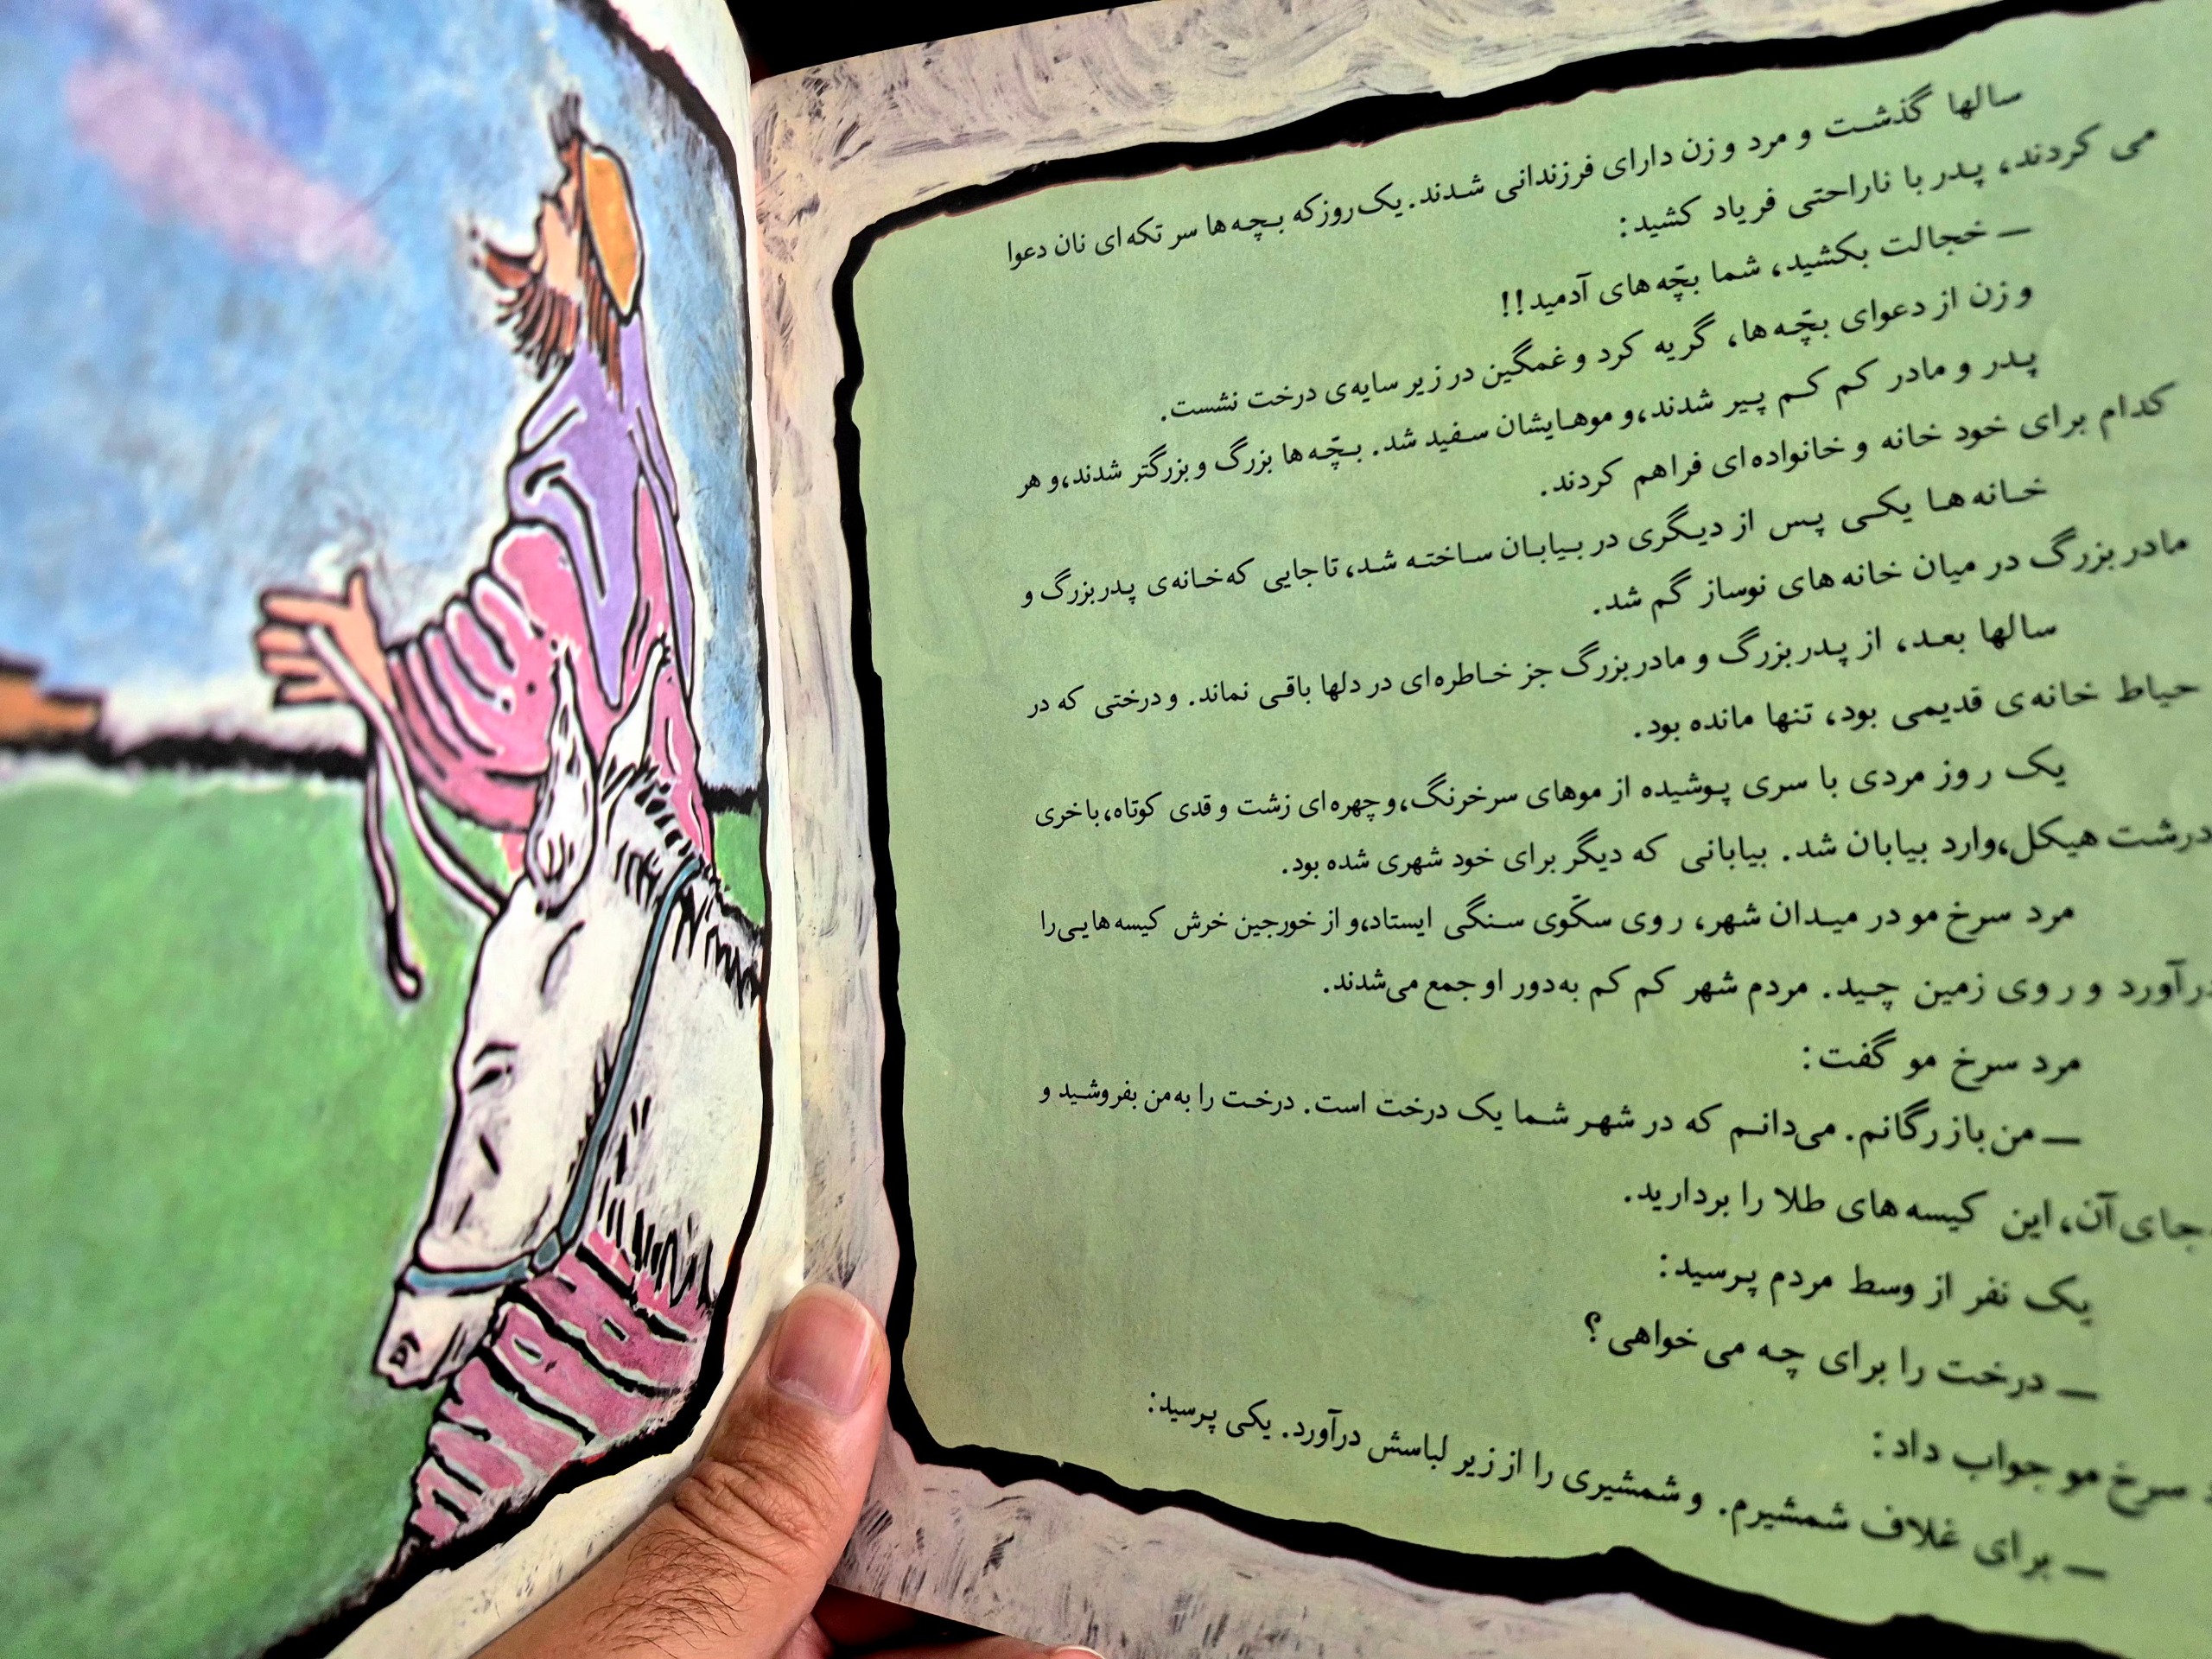 سالها گذشت و مرد و زن دارای فرزندانی شدند. یک روز که بچه ها سر تکه ای نان دعوا
می کردند، پدر با ناراحتی فریاد کشید:
— خجالت بکشید، شما بچّه های آدمید!!
و زن از دعوای بچّه ها، گریه کرد و غمگین در زیر سایه ی درخت نشست.
پدر و مادر کم کم پیر شدند، و موهایشان سفید شد. بچّه ها بزرگ و بزرگتر شدند، و هر
کدام برای خود خانه و خانواده ای فراهم کردند.
خانه ها یکی پس از دیگری در بیابان ساخته شد، تا جایی که خانه ی پدربزرگ و
مادربزرگ در میان خانه های نوساز گم شد.
سالها بعد، از پدربزرگ و مادربزرگ جز خاطره ای در دلها باقی نماند. و درختی که در
حیاط خانه ی قدیمی بود، تنها مانده بود.
یک روز مردی با سری پوشیده از موهای سرخرنگ، و چهره ای زشت و قدی کوتاه، با خری
درشت هیکل، وارد بیابان شد. بیابانی که دیگر برای خود شهری شده بود.
مرد سرخ مو در میدان شهر، روی سکّوی سنگی ایستاد، و از خورجین خرش کیسه هایی را
درآورد و روی زمین چید. مردم شهر کم کم به دور او جمع می‌شدند.
مرد سرخ مو گفت:
— من بازرگانم. می‌دانم که در شهر شما یک درخت است. درخت را به من بفروشید و
جای آن، این کیسه های طلا را بردارید.
یک نفر از وسط مردم پرسید:
— درخت را برای چه می خواهی؟
سرخ مو جواب داد:
— برای غلاف شمشیرم. و شمشیری را از زیر لباسش درآورد. یکی پرسید: